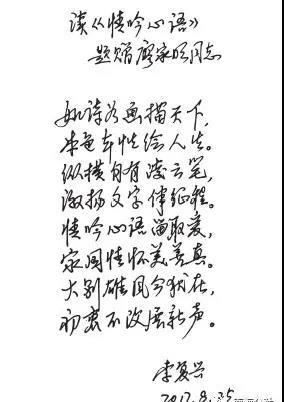 读《情吟心语》
题赠廖家旺同志
如诗如画描天下，
本色本性绘人生。
纵横自有凌云笔，
激扬文字伴征程。
情吟心语留取爱，
家国情怀美善真。
大别雄风今犹在，
初衷不改展新声。
李复兴
2017.8.25